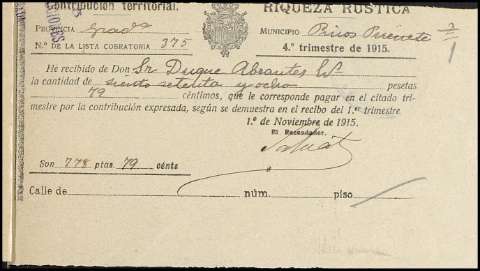 Contribución territorial.
RIQUEZA RÚSTICA
PROVINCIA Granada
MUNICIPIO Pinos Puente
N.º DE LA LISTA COBRATORIA 375
4.º trimestre de 1915.
He recibido de Don Sr. Duque Abrantes
la cantidad de siento setenta y ocho pesetas
79 céntimos, que le corresponde pagar en el citado tri-
mestre por la contribución expresada, según se demuestra en el recibo del 1.er trimestre.
1.º de Noviembre de 1915.
El Recaudador,
SON 778 ptas 79 cénts
Calle de núm. piso